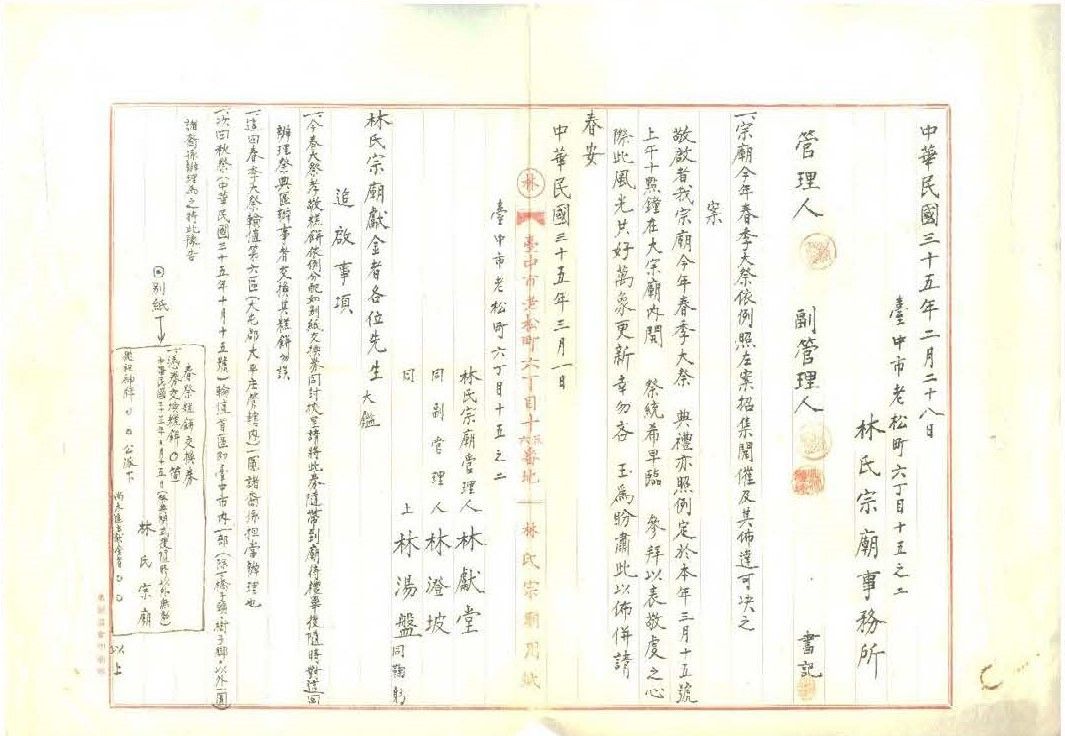 中華民國三十五年二月二十八日
臺中市老松町六丁目十五之二
林氏宗廟事務所
管理人 副管理人 書記
一、宗廟今年春季大祭依例照左案招集開催及其佈達可決之
案
敬啟者我宗廟今年春季大祭 典禮亦照例定於本年三月十五號
上午十點鐘在大宗廟內開 祭統希早臨 參拜以表敬虔之心
際此風光共好萬象更新幸勿吝 玉為盼肅此以佈併請
春安
中華民國三十五年三月一日
臺中市老松町六丁目十五之二
林
臺中市老松町六丁目十五六番地
林氏宗廟用紙
林氏宗廟管理人 林獻堂
同 副管理人 林澄坡
同 上 林湯盤 同鞠躬
林氏宗廟獻金者各位先生 大鑑
追啟事項
一、今春大祭孝敬糕餅依例分配如別紙交換券同封披呈請將此券隨帶到廟待禮畢後隨時對這回
辦理祭典區辦事者交換其糕餅勿誤
一、這回春季大祭輪值第六區（大屯郡大平庄管轄內）一圓諸裔孫担當辦理也
一、次回秋祭（中華民國三十五年十月十五號）輪值首區即臺中市內一部（除橋子頭、樹子腳、以外一圓）
諸裔孫辦理為之特此豫告
別紙
春祭糕餅交換券
一、憑券交換糕餅〇箇
林氏宗廟
以上